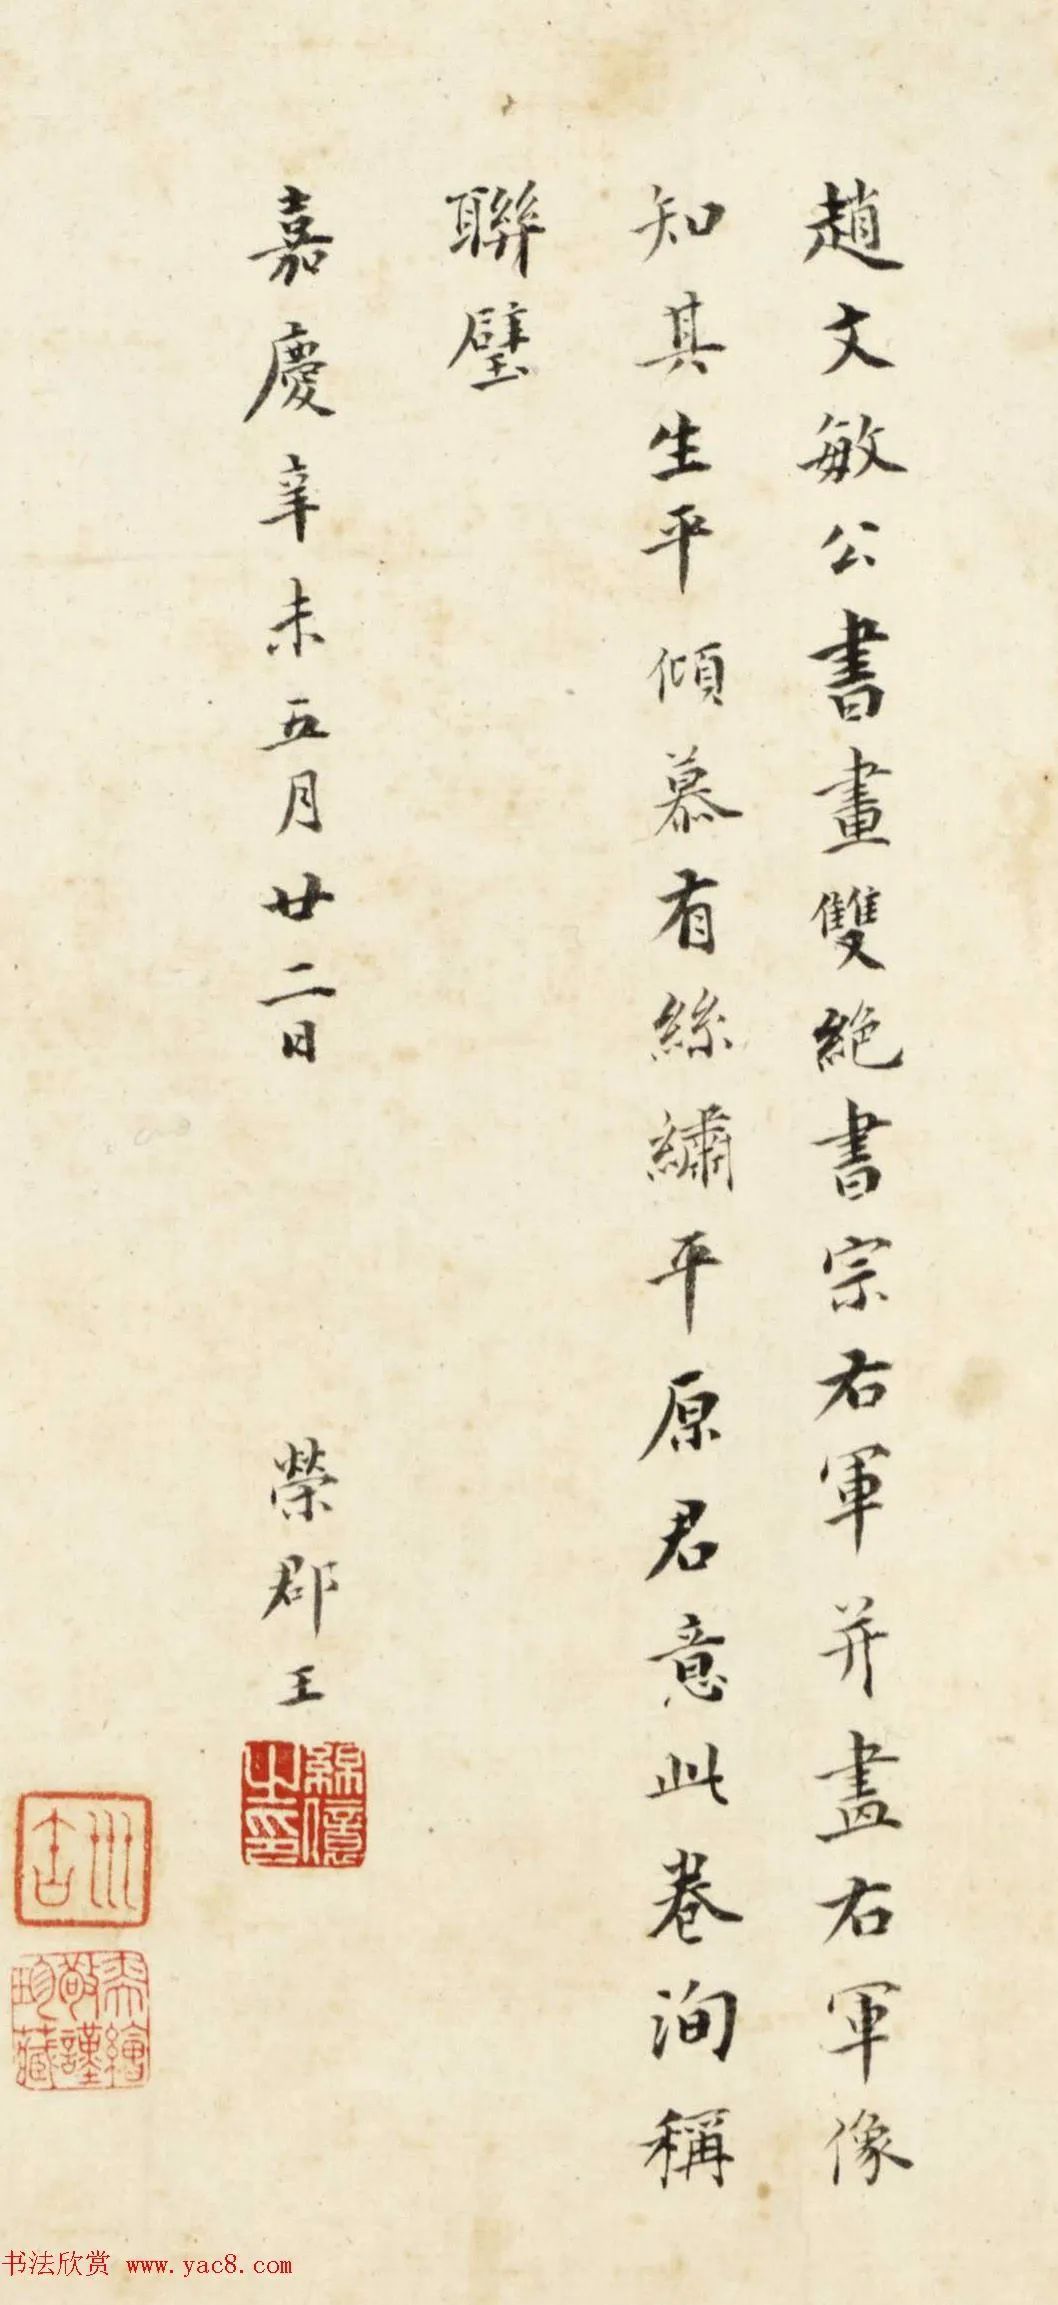 趙文敏公書畫雙絕書宗右軍并畫右軍像
知其生平傾慕有絲繡平原君意此卷洵稱
聯璧
嘉慶辛未五月廿二日
榮郡王
綿億之印
書法欣赏 www.yac8.com